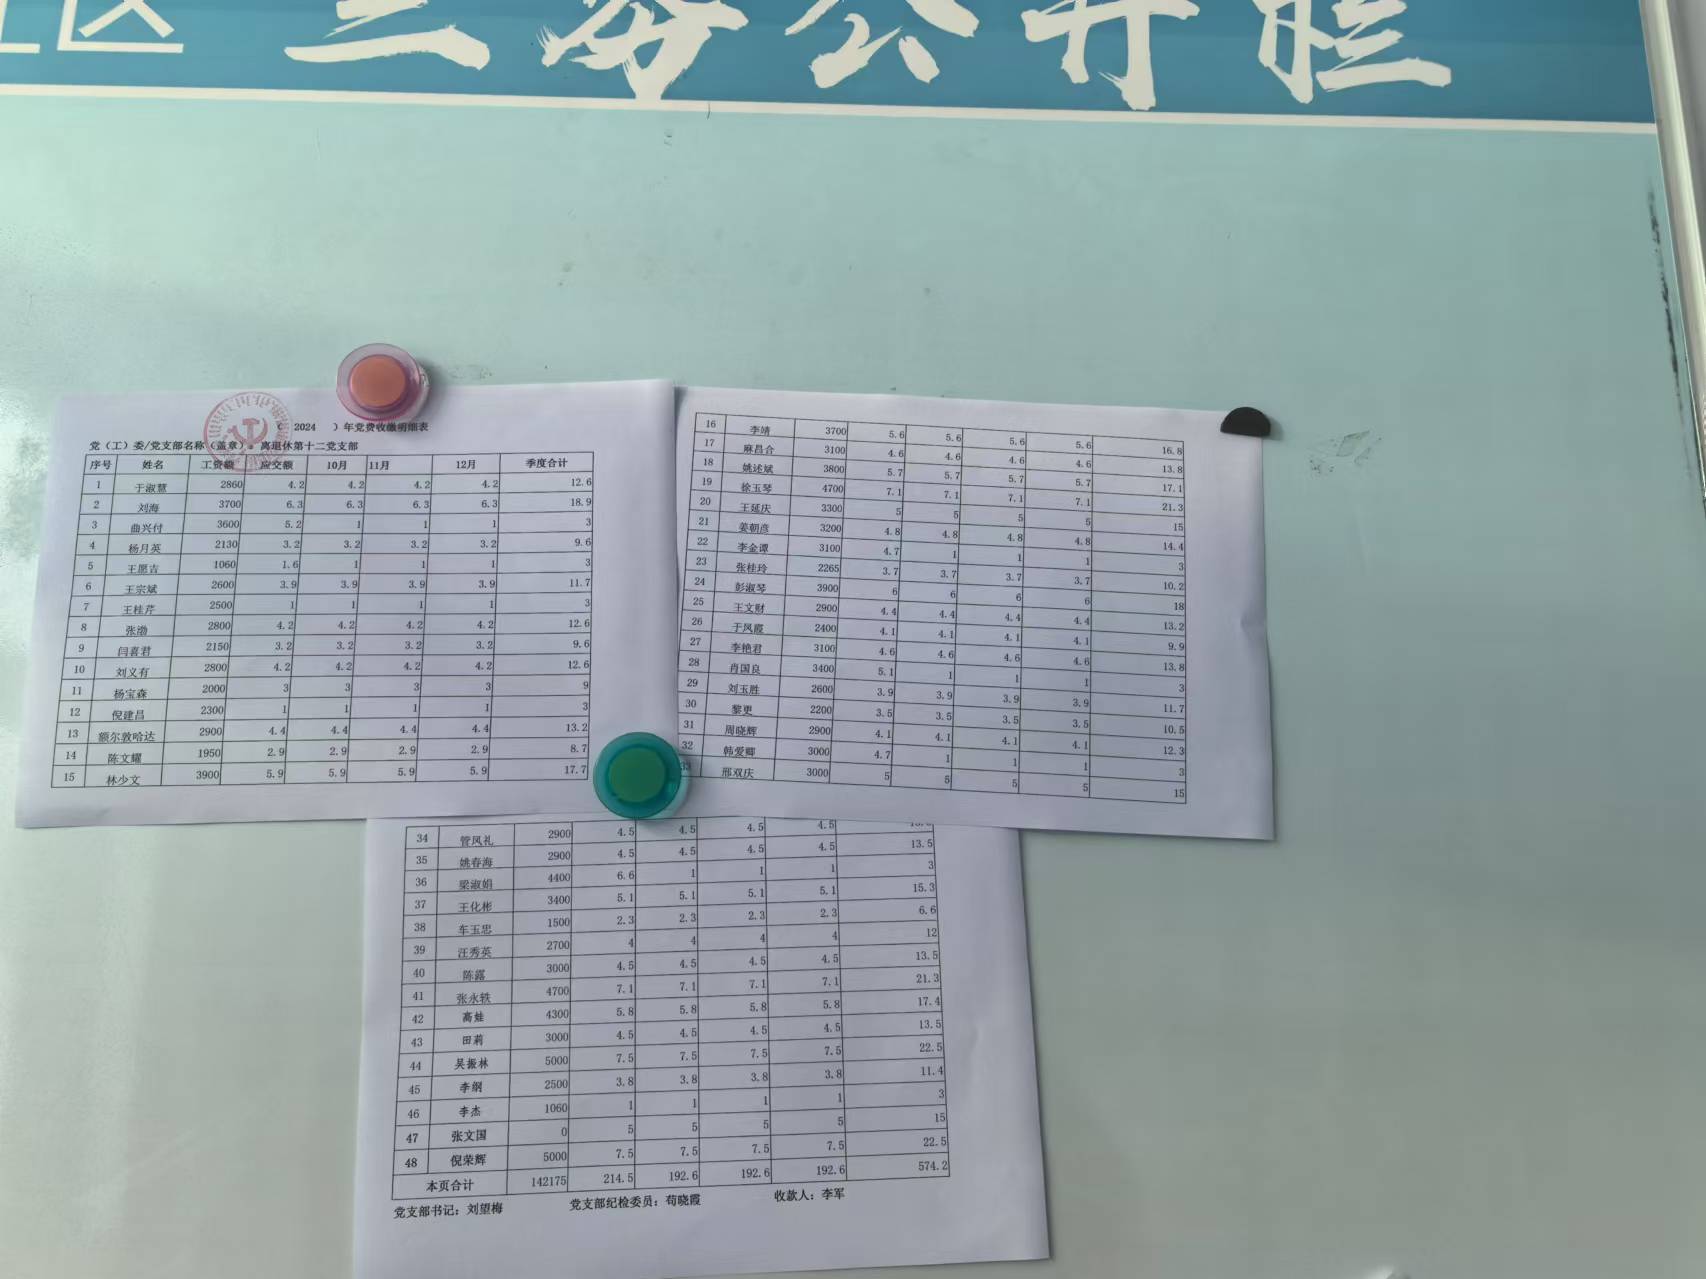 社区 三务公开栏
（ 2024 ）年党费收缴明细表
党（工）委/党支部名称（盖章）：离退休第十二党支部
序号 姓名 工资额 应交额 10月 11月 12月 季度合计
1 于淑慧 2860 4.2 4.2 4.2 4.2 12.6
2 刘海 3700 6.3 6.3 6.3 6.3 18.9
3 曲兴付 3600 5.2 1 1 1 3
4 杨月英 2130 3.2 3.2 3.2 3.2 9.6
5 王愿吉 1060 1.6 1 1 1 3
6 王宗斌 2600 3.9 3.9 3.9 3.9 11.7
7 王桂芹 2500 1 1 1 1 3
8 张渤 2800 4.2 4.2 4.2 4.2 12.6
9 闫喜君 2150 3.2 3.2 3.2 3.2 9.6
10 刘义有 2800 4.2 4.2 4.2 4.2 12.6
11 杨宝森 2000 3 3 3 3 9
12 倪建昌 2300 1 1 1 1 3
13 额尔敦哈达 2900 4.4 4.4 4.4 4.4 13.2
14 陈文耀 1950 2.9 2.9 2.9 2.9 8.7
15 林少文 3900 5.9 5.9 5.9 5.9 17.7
16 李靖 3700 5.6 5.6 5.6 5.6 16.8
17 麻昌合 3100 4.6 4.6 4.6 4.6 13.8
18 姚述斌 3800 5.7 5.7 5.7 5.7 17.1
19 徐玉琴 4700 7.1 7.1 7.1 7.1 21.3
20 王延庆 3300 5 5 5 5 15
21 姜朝彦 3200 4.8 4.8 4.8 4.8 14.4
22 李金谭 3100 4.7 1 1 1 3
23 张桂玲 2265 3.7 3.7 3.7 3.7 10.2
24 彭淑琴 3900 6 6 6 6 18
25 王文财 2900 4.4 4.4 4.4 4.4 13.2
26 于凤霞 2400 4.1 4.1 4.1 4.1 9.9
27 李艳君 3100 4.6 4.6 4.6 4.6 13.8
28 肖国良 3400 5.1 1 1 1 3
29 刘玉胜 2600 3.9 3.9 3.9 3.9 11.7
30 黎更 2200 3.5 3.5 3.5 3.5 10.5
31 周晓辉 2900 4.1 4.1 4.1 4.1 12.3
32 韩爱卿 3000 4.7 1 1 1 3
33 邢双庆 3000 5 5 5 5 15
34 管凤礼 2900 4.5 4.5 4.5 4.5
35 姚春海 2900 4.5 4.5 4.5 4.5 13.5
36 梁淑娟 4400 6.6 1 1 1 3
37 王化彬 3400 5.1 5.1 5.1 5.1 15.3
38 车玉忠 1500 2.3 2.3 2.3 2.3 6.6
39 汪秀英 2700 4 4 4 4 12
40 陈露 3000 4.5 4.5 4.5 4.5 13.5
41 张永轶 4700 7.1 7.1 7.1 7.1 21.3
42 高娃 4300 5.8 5.8 5.8 5.8 17.4
43 田莉 3000 4.5 4.5 4.5 4.5 13.5
44 吴振林 5000 7.5 7.5 7.5 7.5 22.5
45 李纲 2500 3.8 3.8 3.8 3.8 11.4
46 李杰 1060 1 1 1 1 3
47 张文国 0 5 5 5 5 15
48 倪荣辉 5000 7.5 7.5 7.5 7.5 22.5
本页合计 142175 214.5 192.6 192.6 192.6 574.2
党支部书记：刘望梅 党支部纪检委员：荀晓霞 收款人：李军